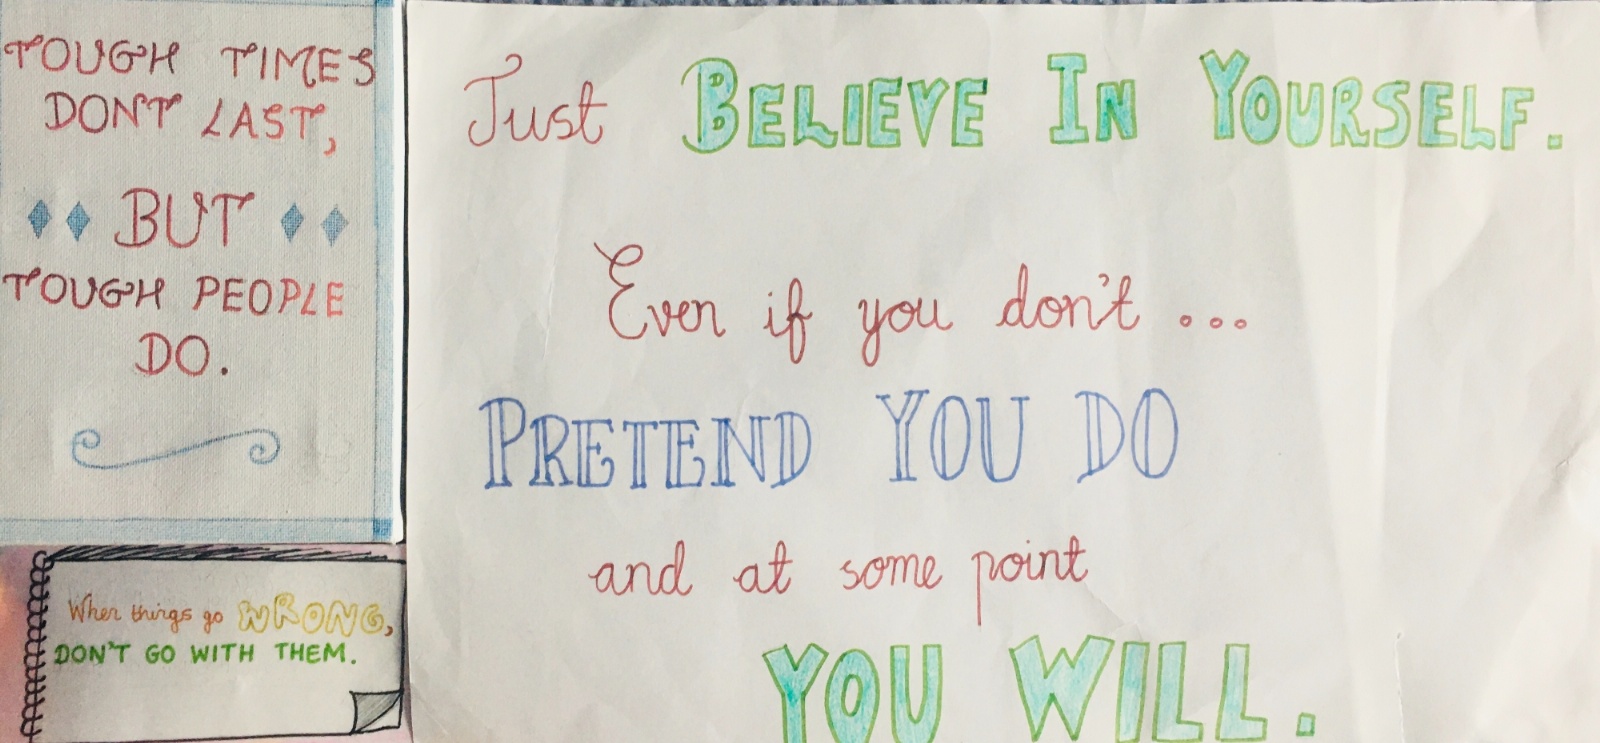 TOUGH TIMES
DONT LAST,
BUT
TOUGH PEOPLE
DO.
When things go WRONG,
DON'T GO WITH THEM.
Just BELIEVE IN YOURSELF.
Even if you don't ...
PRETEND YOU DO
and at some point
YOU WILL.